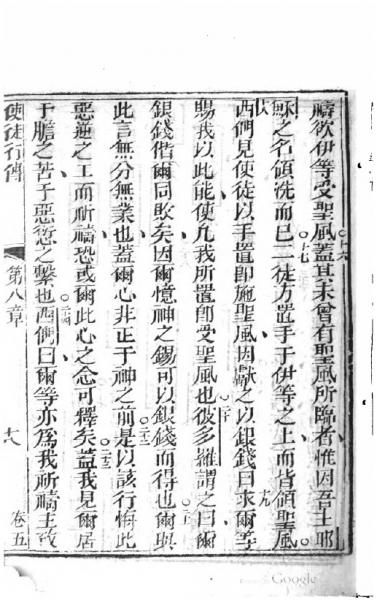 禱欲伊等受聖風蓋其未曾有聖風所臨者惟因吾主耶
穌之名領洗而已二徒方置手于伊等之上而皆領聖風
西們見使徒以手置即施聖風因獻之以銀錢曰求爾等
賜我以此能使凡我所置即受聖風也彼多羅謂之曰爾
銀錢偕爾同敗矣因爾憶神之錫可以銀錢而得也爾與
此言無分無業也蓋爾心非正于神之前是以該行悔此
惡逆之工而祈禱恐或爾此心之念可釋矣蓋我見爾居
于膽之苦于惡愆之繫也西們曰爾等亦為我祈禱主致
使徒行傳
第八章
卷五
十六
十七
十九
二十
二三
二四
Google